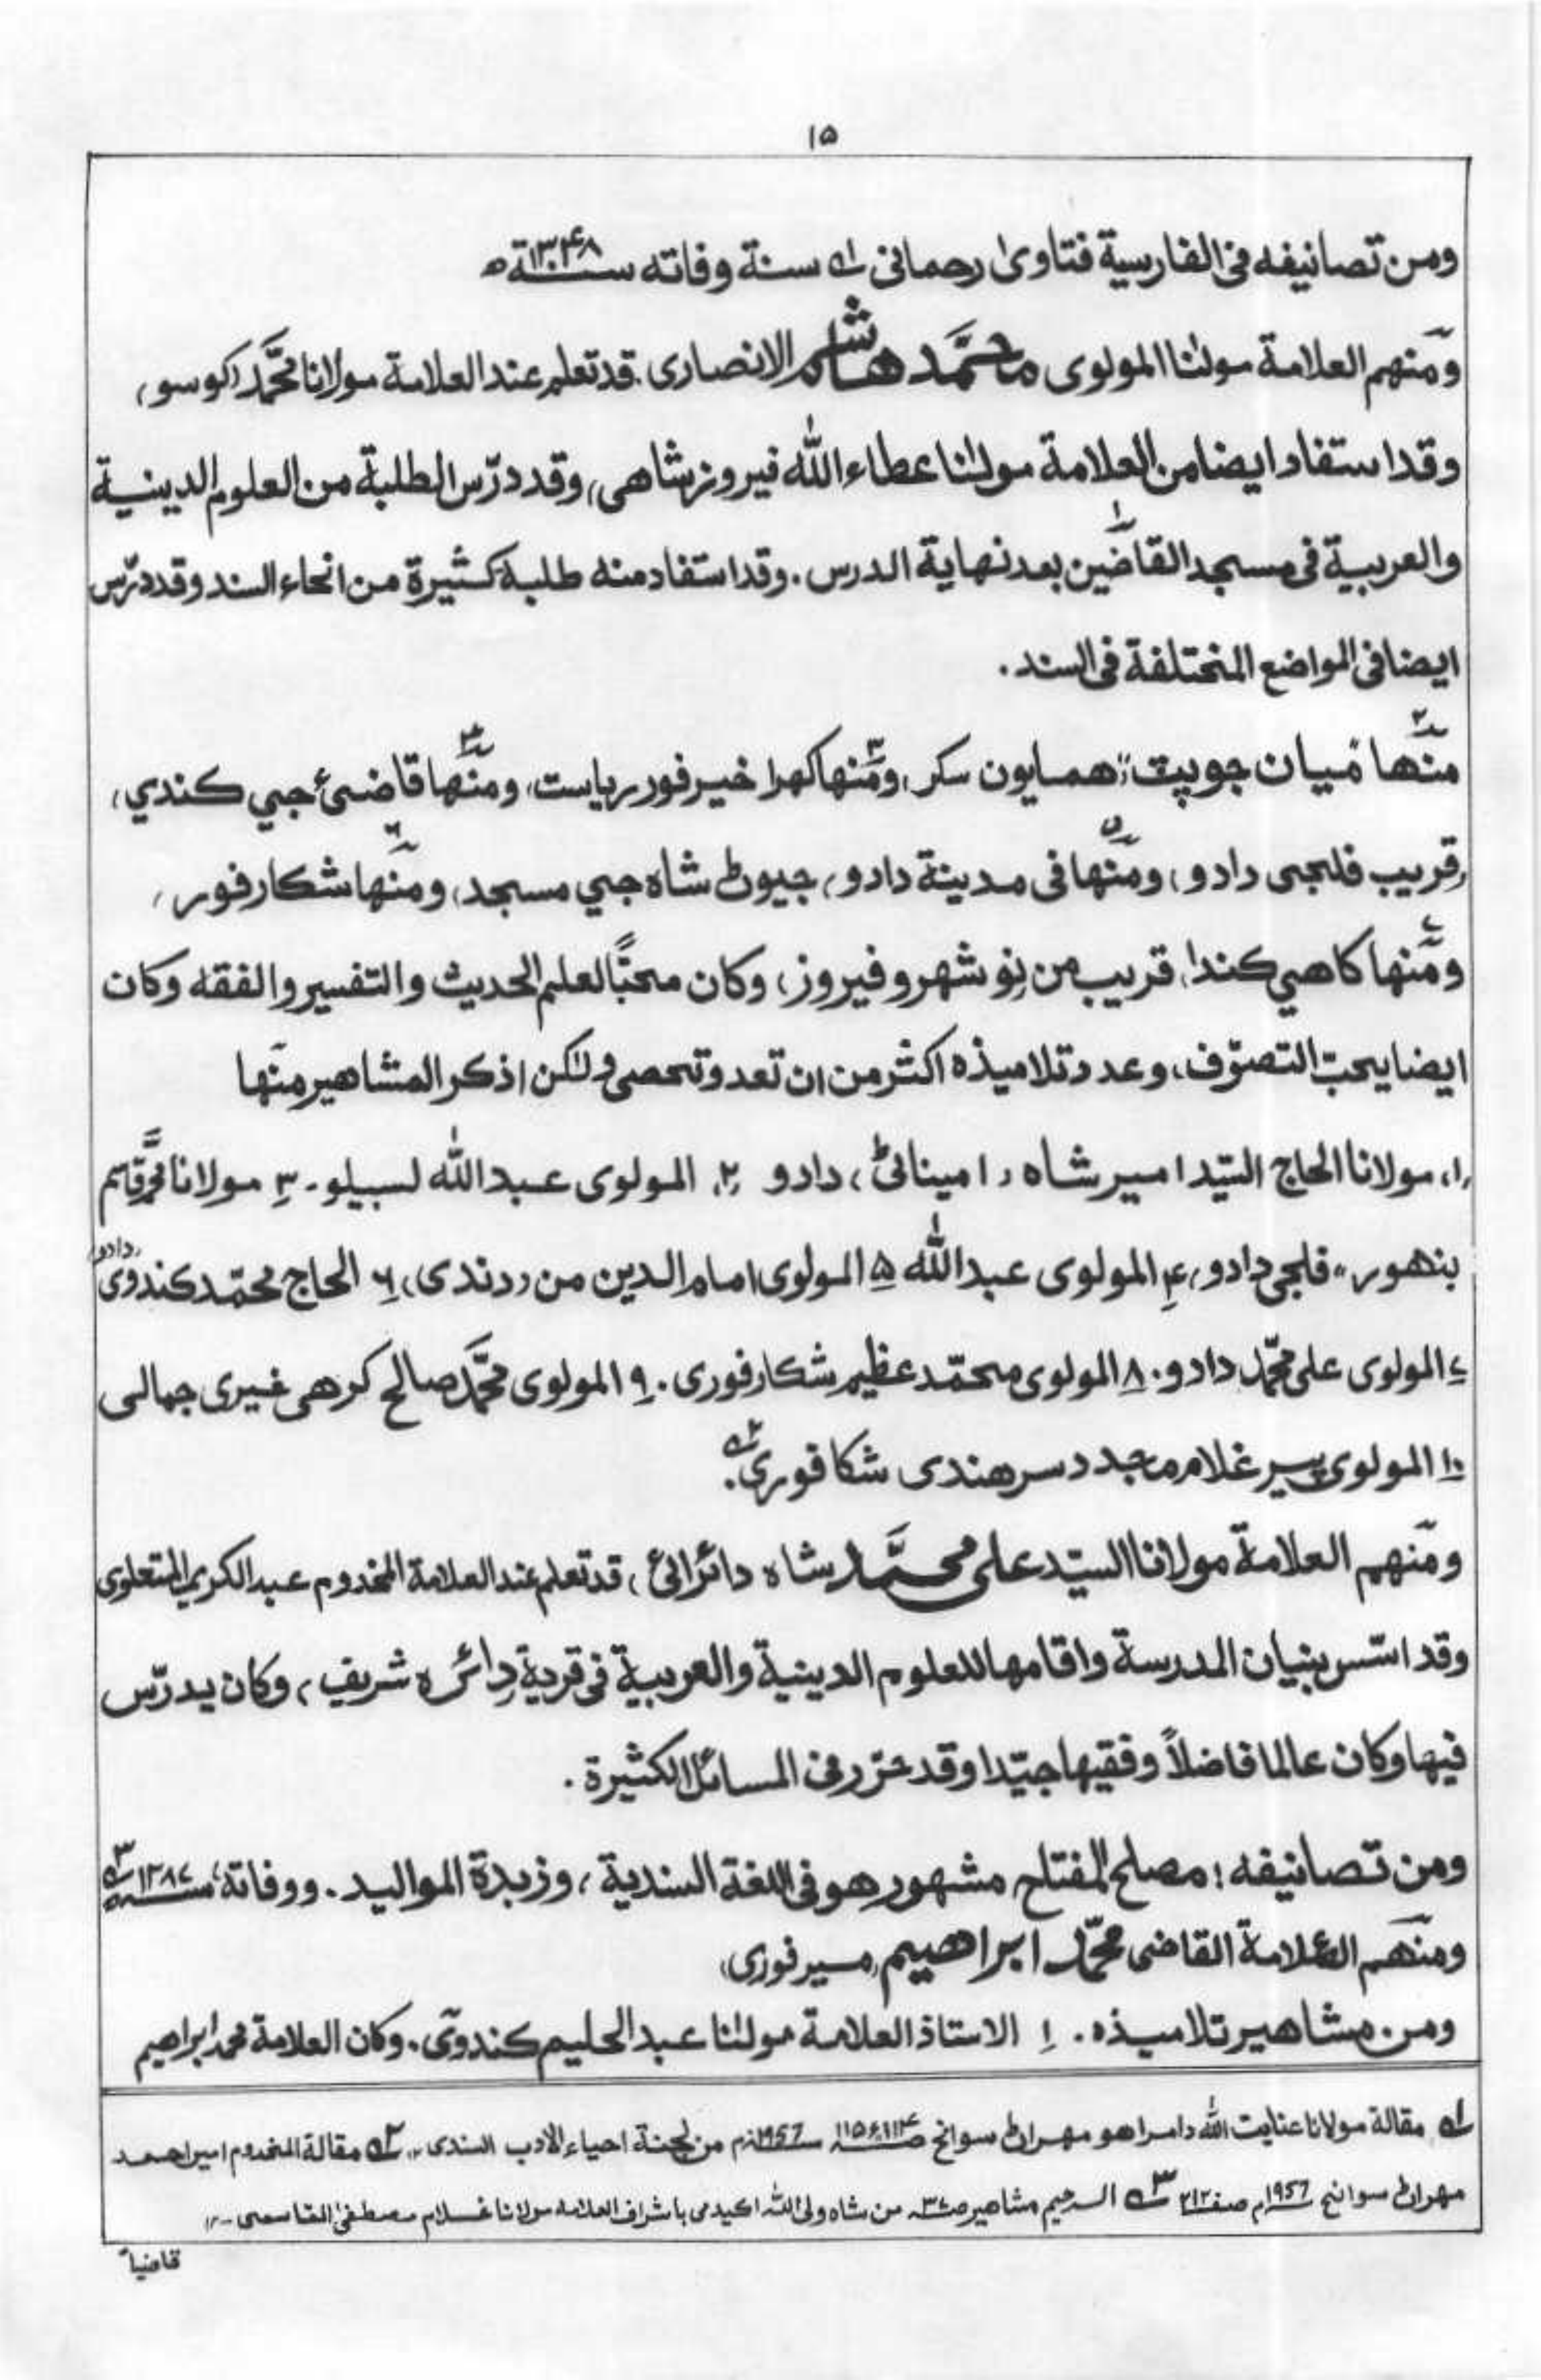 ۱۵
ومن تصانيفه فى الفارسية فتاوىٰ رحمانى ١ھ سنة وفاته سنة ۱۳۴۸ھ
ومنهم العلامة مولٰنا المولوى محمَّد هاشم الانصارى. قد تعلم عند العلامة مولانا محمَّد (كوسو)
وقد استفاد ايضا من العلامة مولٰنا عطاء الله فيروزشاهى، وقد درّس الطلبة من العلوم الدينية
والعربية فى مسجد القاضين بعد نهاية الدرس. وقد استفاد منه طلبة كثيرة من انحاء السند وقد درّس
ايضا فى المواضع المختلفة فى السند.
منها ميان جو پٽ، همايون سكر، ومنها كهرا خيرفور رياست، ومنها قاضىء جي كندي،
(قريب فلجى دادو) ومنها فى مدينة دادو، جيوڻ شاه جي مسجد، ومنها شكارفور،
ومنها كاهي كندا، قريب من نوشهرو فيروز، وكان محبًّا لعلم الحديث والتفسير والفقه وكان
ايضا يحبّ التصوّف، وعدد تلاميذه اكثر من ان تعد وتحصى ولٰكن اذكر المشاهير منها
(۱) مولانا الحاج السّيد امير شاه (اميناڻى) دادو (۲) المولوى عبد الله لسبيلو۔ ۳ مولانا محمّد قاسم
بنهور، فلجى دادو، ۴ المولوى عبد الله ۵ المولوى امام الدين من (دندى) ۶ الحاج محمّد كندوى (دادو)
۷ المولوى على محمّد دادو. ۸ المولوى محمّد عظيم شكارفورى. ۹ المولوى محمَّد صالح كرهى غيرى جمالى
۱۰ المولوى پير غلام مجدد سرهندى شكافورى ۲ھ.
ومنهم العلامة مولانا السيّد على محمَّد شاه دائرائى، قد تعلم عند العلامة المخدوم عبد الكريم المتعلوى
وقد اسّس بنيان المدرسة واقامها للعلوم الدينية والعربية فى قرية دائره شريف، وكان يدرّس
فيها وكان عالما فاضلاً وفقيها جيّدا وقد حرّر فى المسائل الكثيرة.
ومن تصانيفه: مصلح المفتاح مشهور هو فى اللغة السندية، وزبدة المواليد. ووفاته سنه ۱۳۸۷ ۳ھ
ومنهم العلامة القاضى محمّد ابراهيم (ميرفورى)
ومن مشاهير تلاميذه. ۱ الاستاذ العلامة مولٰنا عبد الحليم كندوى. وكان العلامة محمد ابراهيم
١ھ مقالة مولانا عنايت الله دامراهو مهراڻ سوانح صـ ۱۱۴ ۽ ۱۱۵ سـ 1957م من لجنة احياء الادب السندى۔، ۲ھ مقالة المخدوم امير احمد
مهراڻ سوانح 1957م صفـ ۲۱۲ ۳ھ الرحيم مشاهير صـ من شاه ولى الله اكيدمى باشراف العلامه مولانا غلام مصطفىٰ القاسمى ۔۱۲
قاضياً